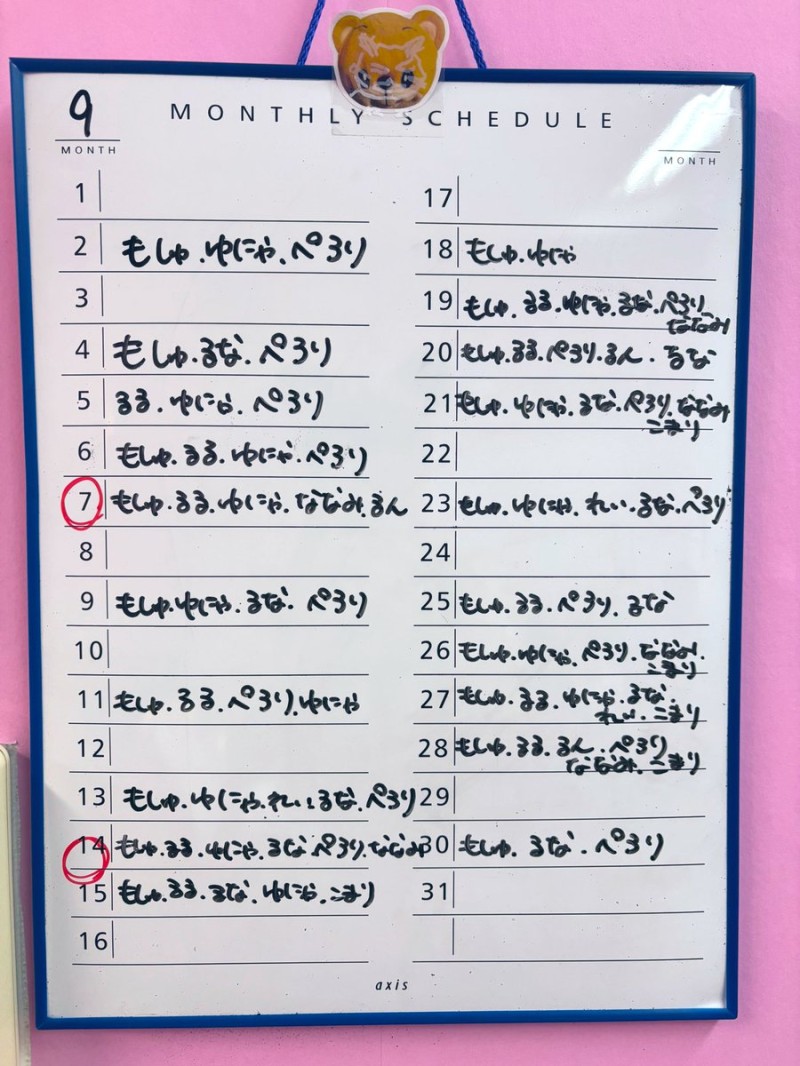 9
MONTH
MONTHLY SCHEDULE
MONTH
1
2 もしゅ.ゆにゃ.ぺろり
3
4 もしゅ.るな.ぺろり
5 るる.ゆにゃ.ぺろり
6 もしゅ.るる.ゆにゃ.ぺろり
7 もしゅ.るる.ゆにゃ.ななみ.るん
8
9 もしゅ.ゆにゃ.るな.ぺろり
10
11 もしゅ.るる.ぺろり.ゆにゃ
12
13 もしゅ.ゆにゃ.れい.るな.ぺろり
14 もしゅ.るる.ゆにゃ.るな.ぺろり.ななみ
15 もしゅ.るる.るな.ゆにゃ.こまり
16
17
18 もしゅ.ゆにゃ
19 もしゅ.るる.ゆにゃ.るな.ぺろり
ななみ
20 もしゅ.るる.ぺろり.るん.るな
21 もしゅ.ゆにゃ.るな.ぺろり.ななみ
こまり
22
23 もしゅ.ゆにゃ.れい.るな.ぺろり
24
25 もしゅ.るる.ぺろり.るな
26 もしゅ.ゆにゃ.ぺろり.ななみ.
こまり
27 もしゅ.るる.ゆにゃ.るな.
れい.こまり
28 もしゅ.るる.るん.ぺろり
ななみ.こまり
29
30 もしゅ.るな.ぺろり
31
axis